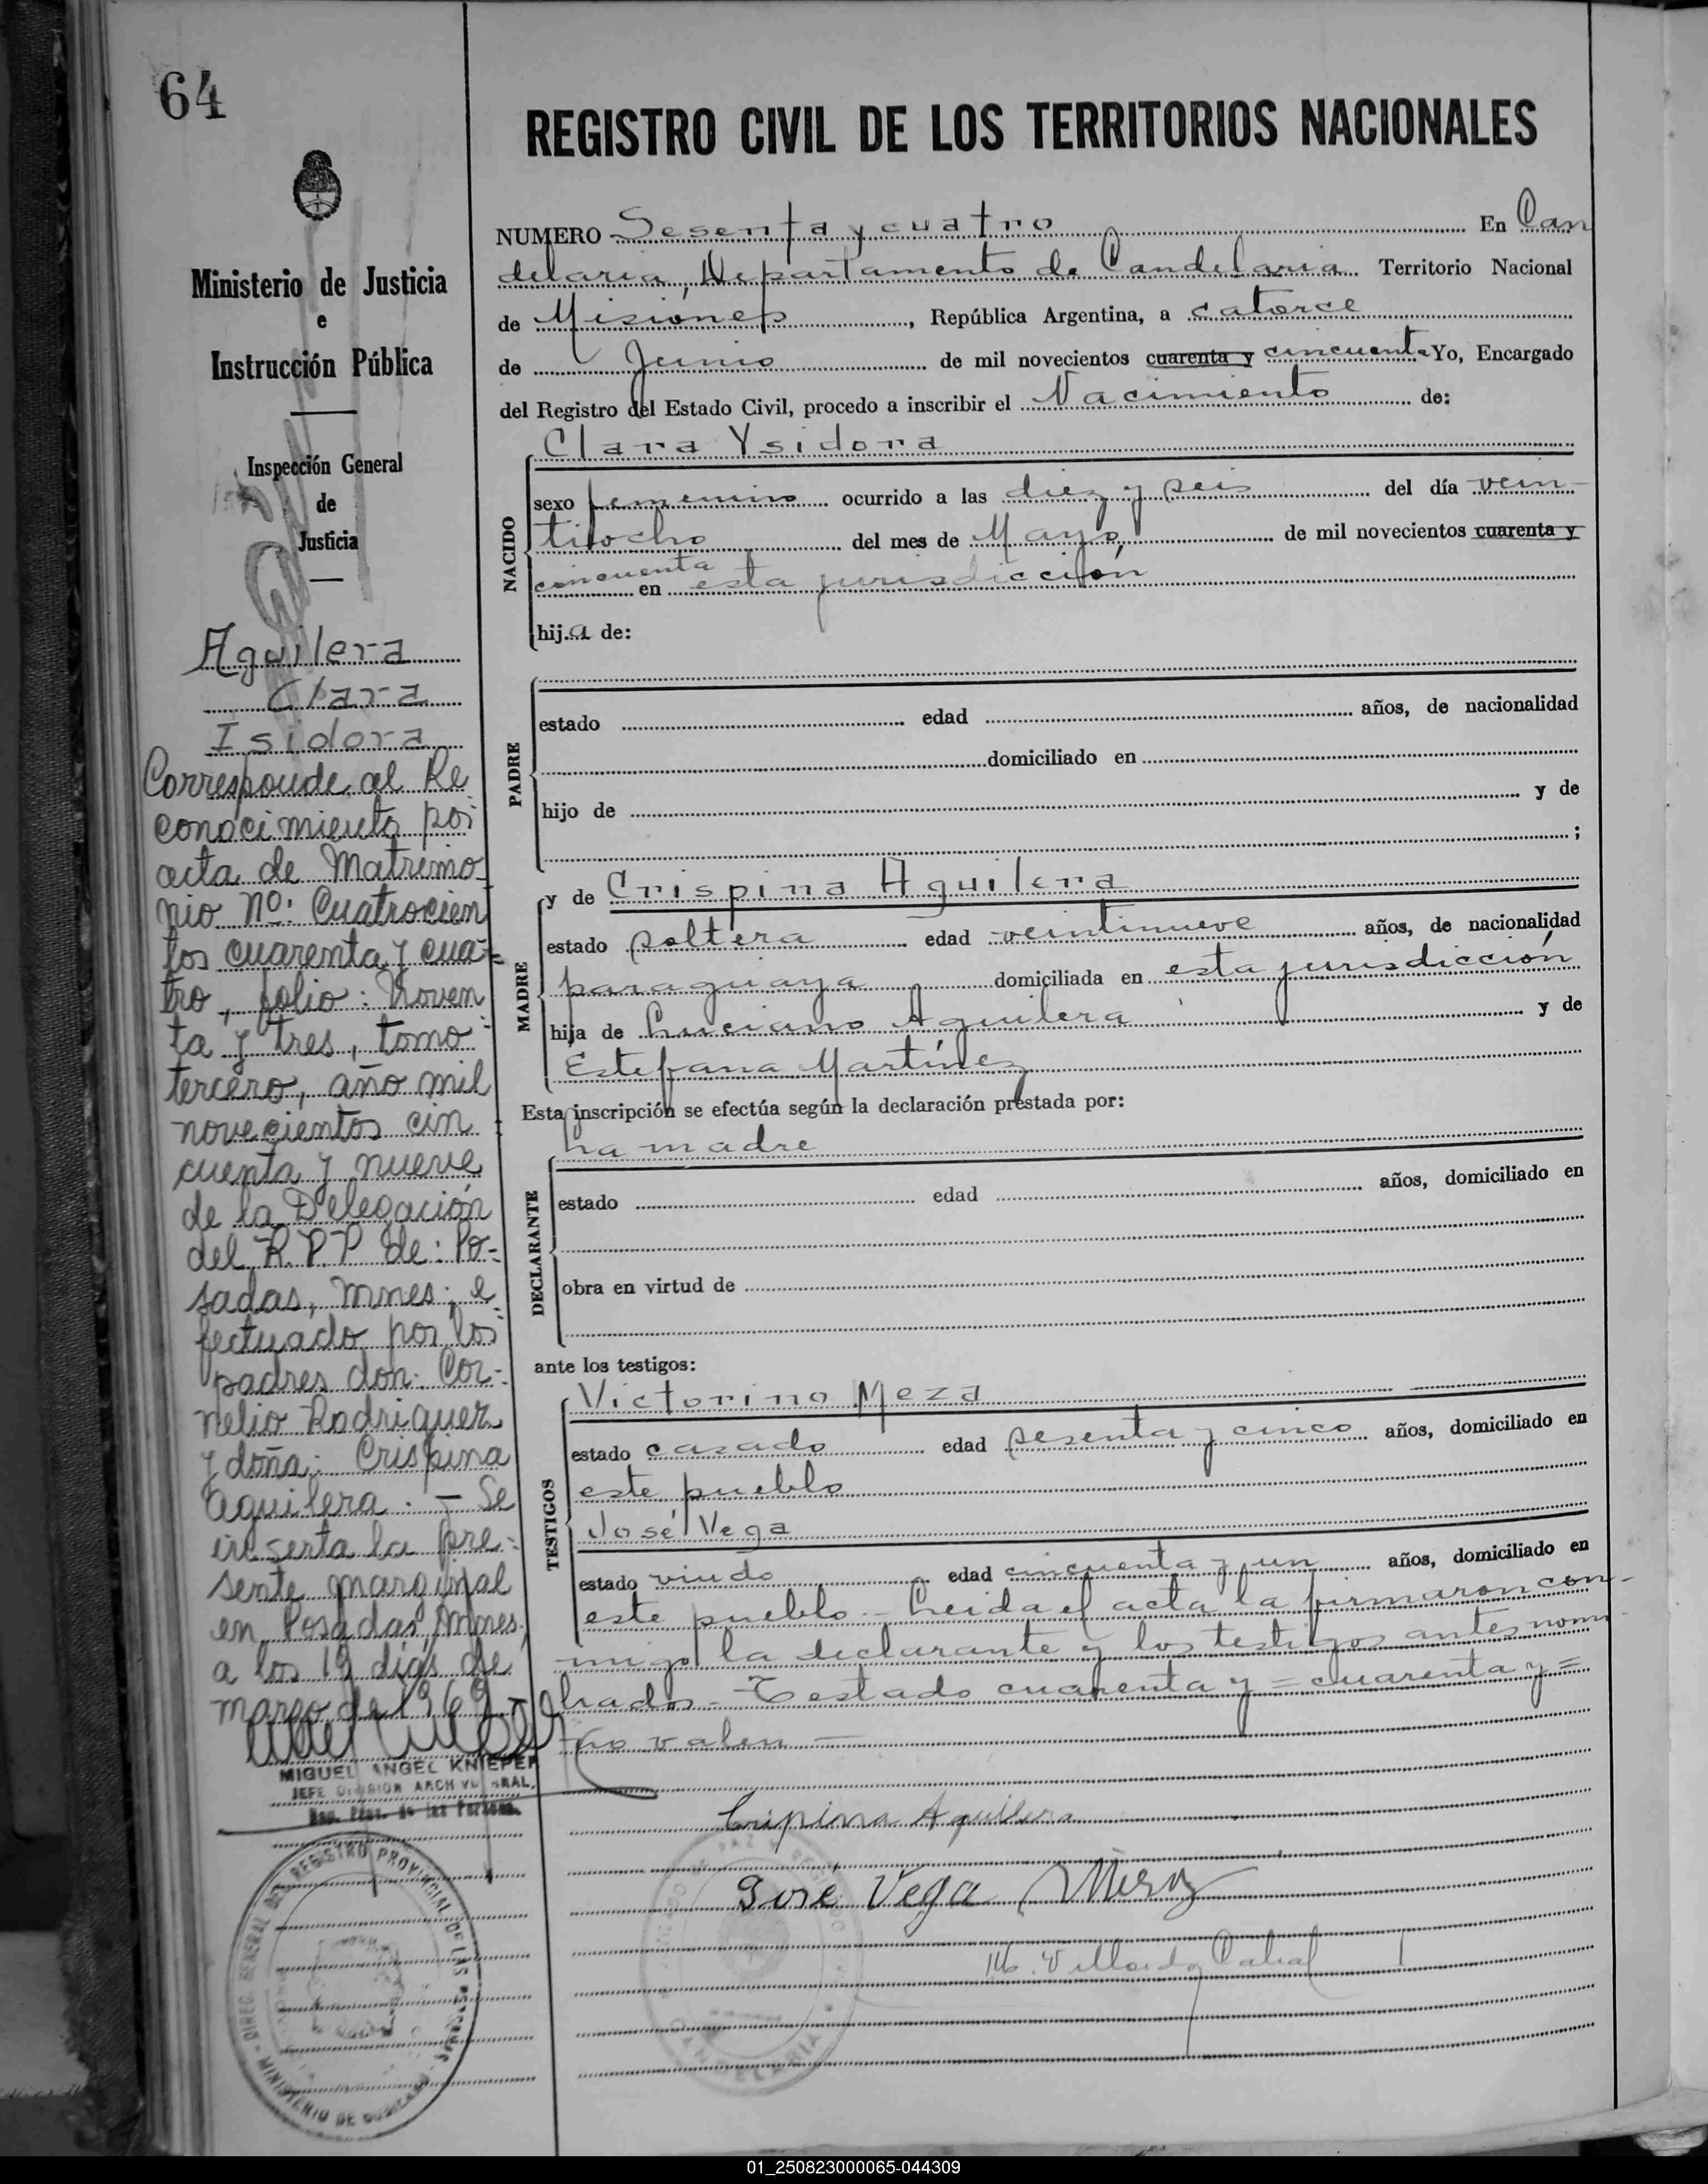 64
REGISTRO CIVIL DE LOS TERRITORIOS NACIONALES
Ministerio de Justicia
e
Instrucción Pública
Inspección General
de
Justicia
Aguilera
Clara
Isidora
Corresponde al Re
conocimiento por
acta de Matrimo-
nio Nº: Cuatrocien
tos cuarenta y cua-
tro, folio: Noven
ta y tres, tomo
tercero, año mil
novecientos cin
cuenta y nueve
de la Delegación
del R.P.P de: Po-
sadas, Mnes; e
fectuado por los
padres don: Cor-
nelio Rodriguez
y doña: Crispina
Aguilera. - Se
inserta la pre-
sente marginal
en Posadas, Mnes,
a los 19 días de
marzo de 1969.-
MIGUEL ANGEL KNIEPER
JEFE DIVISION ARCH
Reg. Prov. de las Person.
DIREC. GENERAL DEL REGISTRO PROVINCIAL DE LAS
MINISTERIO DE GOBIERNO
NUMERO Sesenta y cuatro En Can
delaria, Departamento de Candelaria Territorio Nacional
de Misiones, República Argentina, a catorce
de Junio de mil novecientos cuarenta y cincuenta Yo, Encargado
del Registro del Estado Civil, procedo a inscribir el Nacimiento de:
Clara Ysidora
NACIDO
sexo femenino ocurrido a las diez y seis del día vein-
tiocho del mes de Mayo de mil novecientos cuarenta y
cincuenta en esta jurisdicción
hija de:
PADRE
estado edad años, de nacionalidad
domiciliado en
hijo de y de
;
y de Crispina Aguilera
MADRE
estado soltera edad veintinueve años, de nacionalidad
paraguaya domiciliada en esta jurisdicción
hija de Luciano Aguilera y de
Estefana Martínez
Esta inscripción se efectúa según la declaración prestada por:
La madre
DECLARANTE
estado edad años, domiciliado en
obra en virtud de
ante los testigos:
Victorino Meza
TESTIGOS
estado casado edad sesenta y cinco años, domiciliado en
este pueblo
José Vega
estado viudo edad cincuenta y un años, domiciliado en
este pueblo.- Leida el acta la firmaron con-
migo la declarante y los testigos antes nom-
brados - Testado cuarenta y = cuarenta y =
no valen -
Crispina Aguilera
José Vega
CANDELARIA
01_250823000065-044309